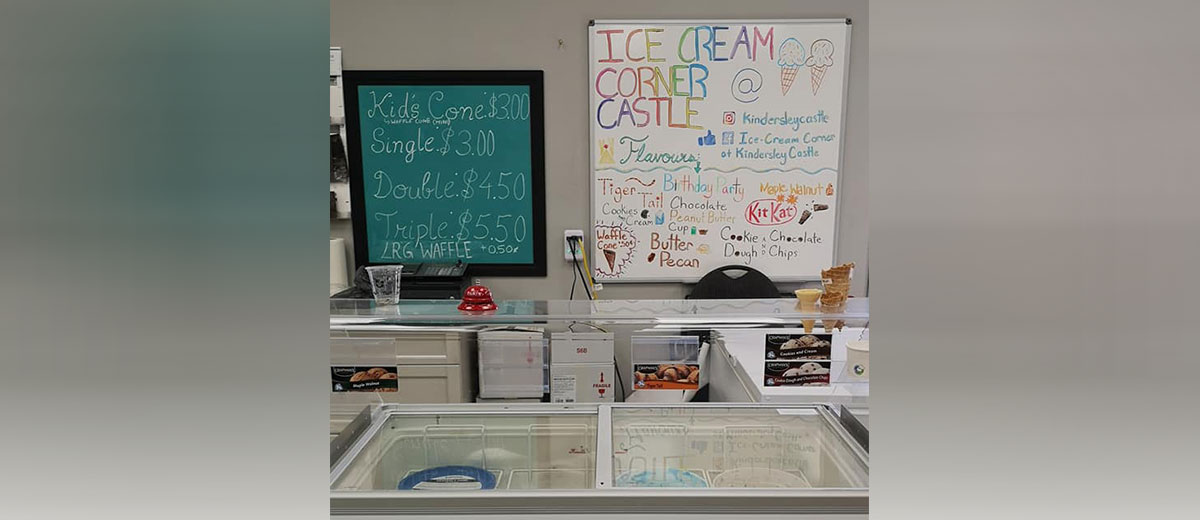 Kid's Cone: $3.00
Single: $3.00
Double: $4.50
Triple: $5.50
LRG WAFFLE +0.50¢
ICE CREAM
CORNER @
CASTLE
Kindersleycastle
Ice-Cream Corner
at Kindersley Castle
Flavours:
Tiger Tail
Birthday Party
Maple Walnut
Cookies n Cream
Chocolate
Peanut Butter
Cup
KitKat
Waffle
Cone +.50¢
Butter
Pecan
Cookie AND Chocolate
Dough Chips
FRAGILE
Maple Walnut
Tiger Tail
Cookies and Cream
Cookie Dough and Chocolate Chips